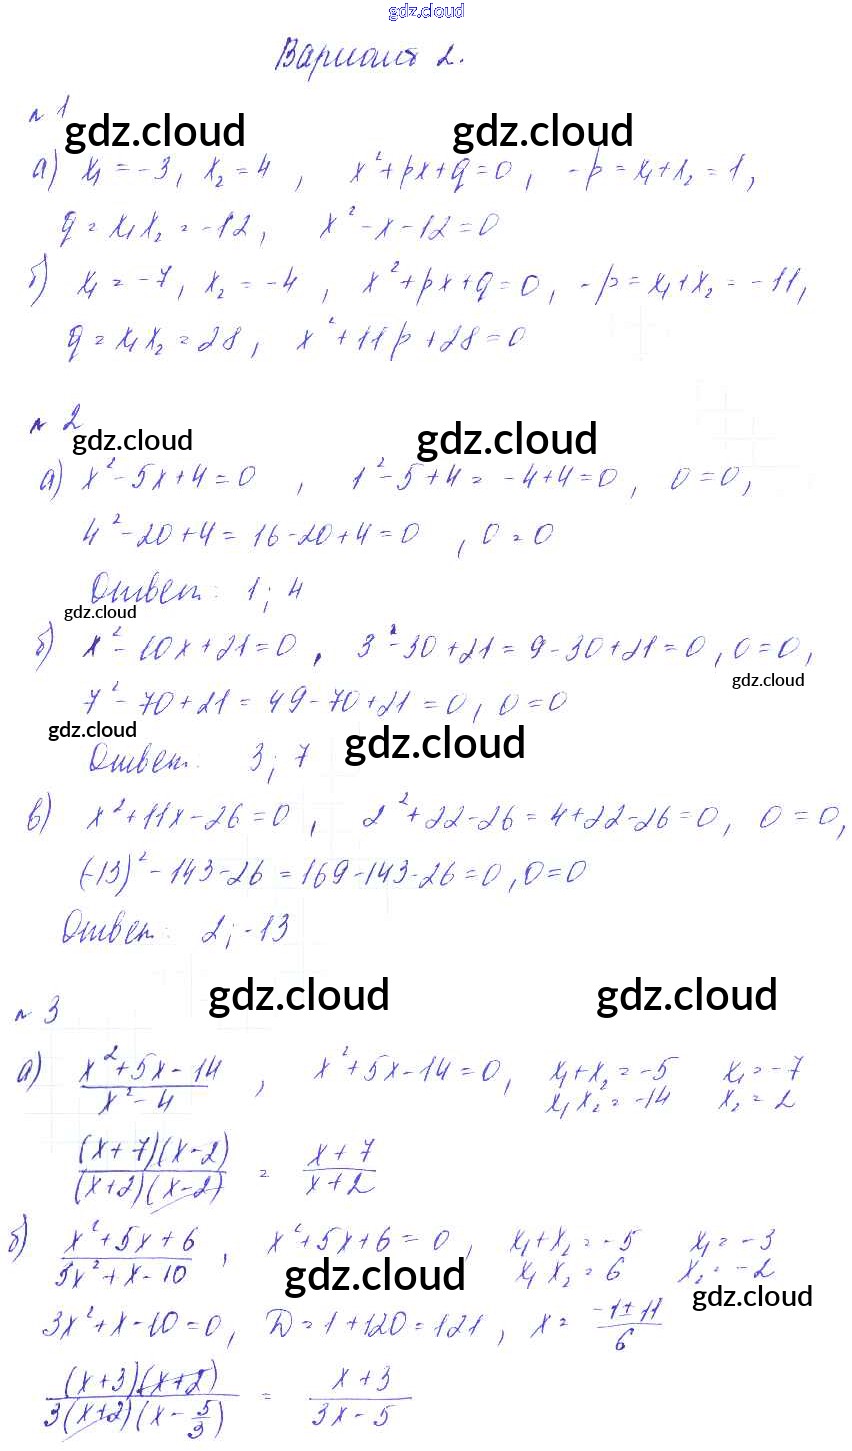 gdz.cloud
Вариант 2.
№ 1
gdz.cloud gdz.cloud
а) x₁ = -3, x₂ = 4, x² + px + q = 0, -p = x₁ + x₂ = 1,
q = x₁x₂ = -12, x² - x - 12 = 0
б) x₁ = -7, x₂ = -4, x² + px + q = 0, -p = x₁ + x₂ = -11,
q = x₁x₂ = 28, x² + 11p + 28 = 0
№ 2
gdz.cloud gdz.cloud
а) x² - 5x + 4 = 0, 1² - 5 + 4 = -4 + 4 = 0, 0 = 0,
4² - 20 + 4 = 16 - 20 + 4 = 0, 0 = 0
Ответ: 1; 4
gdz.cloud
б) x² - 10x + 21 = 0, 3² - 30 + 21 = 9 - 30 + 21 = 0, 0 = 0,
gdz.cloud
7² - 70 + 21 = 49 - 70 + 21 = 0, 0 = 0
gdz.cloud gdz.cloud
Ответ. 3; 7
в) x² + 11x - 26 = 0, 2² + 22 - 26 = 4 + 22 - 26 = 0, 0 = 0,
(-13)² - 143 - 26 = 169 - 143 - 26 = 0, 0 = 0
Ответ: 2; -13
gdz.cloud gdz.cloud
№ 3
а) (x² + 5x - 14)/(x² - 4), x² + 5x - 14 = 0, x₁ + x₂ = -5 x₁ = -7
x₁x₂ = -14 x₂ = 2
((x + 7)(x - 2))/((x + 2)(x - 2)) = (x + 7)/(x + 2)
б) (x² + 5x + 6)/(3x² + x - 10), x² + 5x + 6 = 0, x₁ + x₂ = -5 x₁ = -3
x₁x₂ = 6 x₂ = -2
gdz.cloud gdz.cloud
3x² + x - 10 = 0, D = 1 + 120 = 121, x = (-1 ± 11)/6
((x + 3)(x + 2))/(3(x + 2)(x - 5/3)) = (x + 3)/(3x - 5)